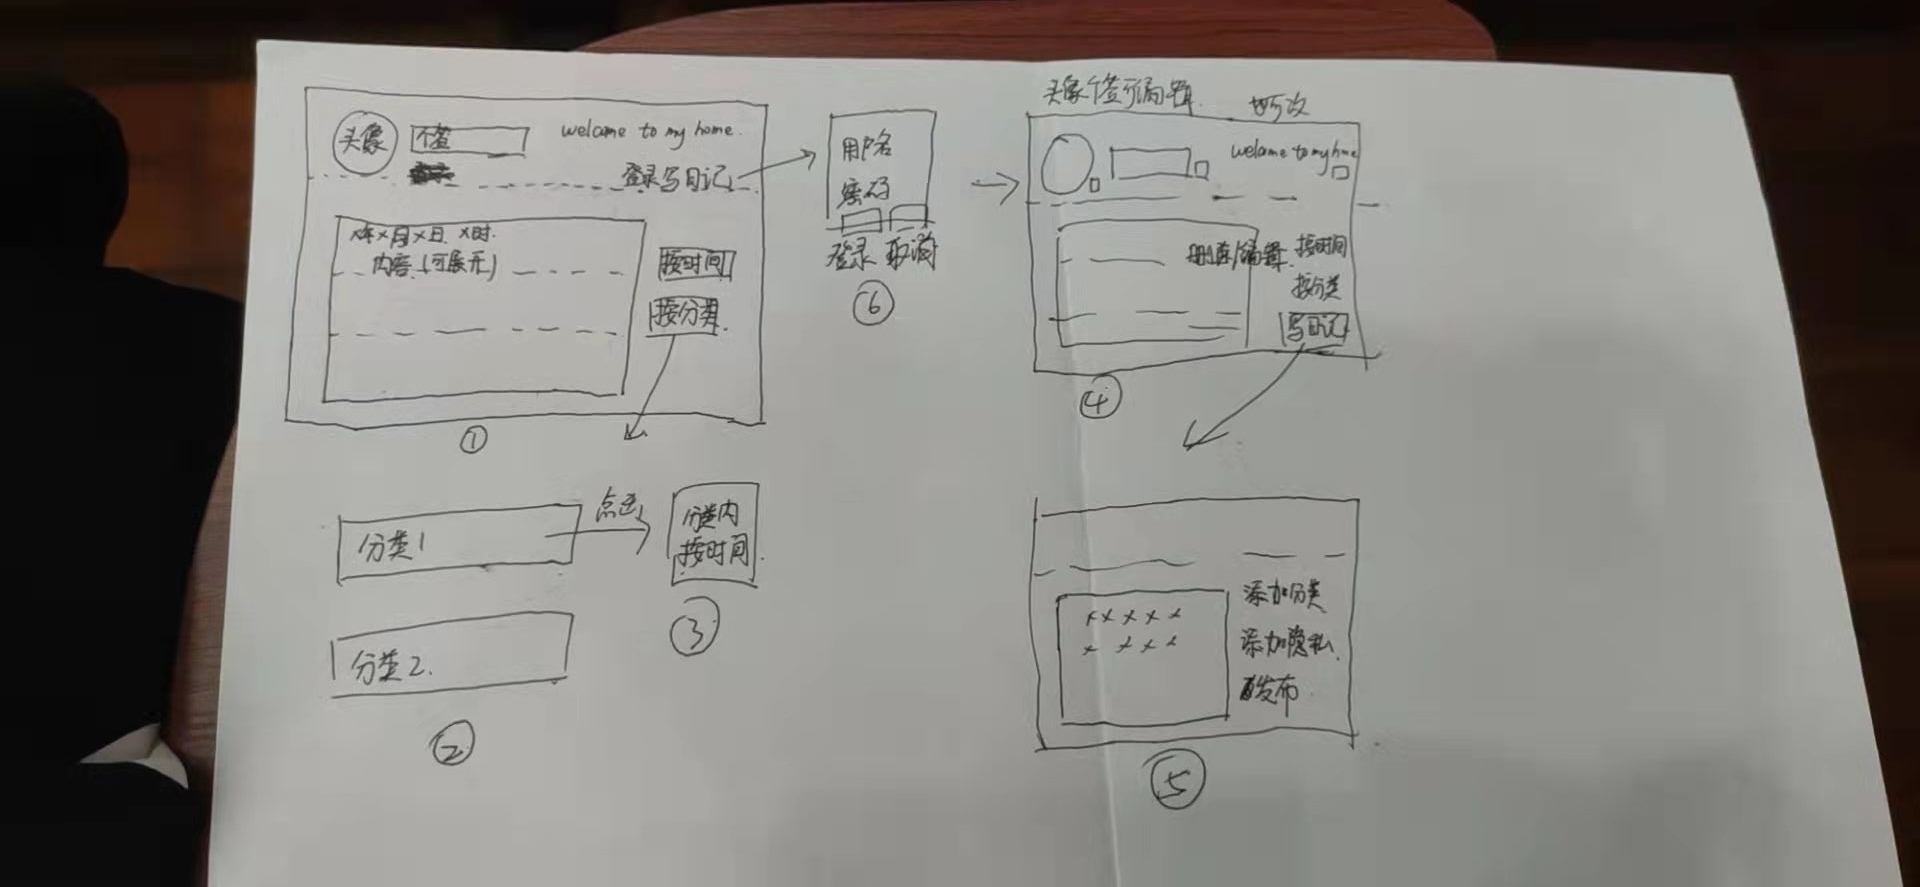 头像
个签
welcome to my home.
登录写日记
X年X月X日 X时
内容 (可展开)
按时间
按分类
①
用户名
密码
登录 取消
⑥
头像个签可编辑
welcome to my home
删除/编辑
按时间
按分类
写日记
④
分类1
点击
分类内
按时间
③
分类2.
②
xxxxx
xxxx
添加分类
添加隐私
发布
⑤